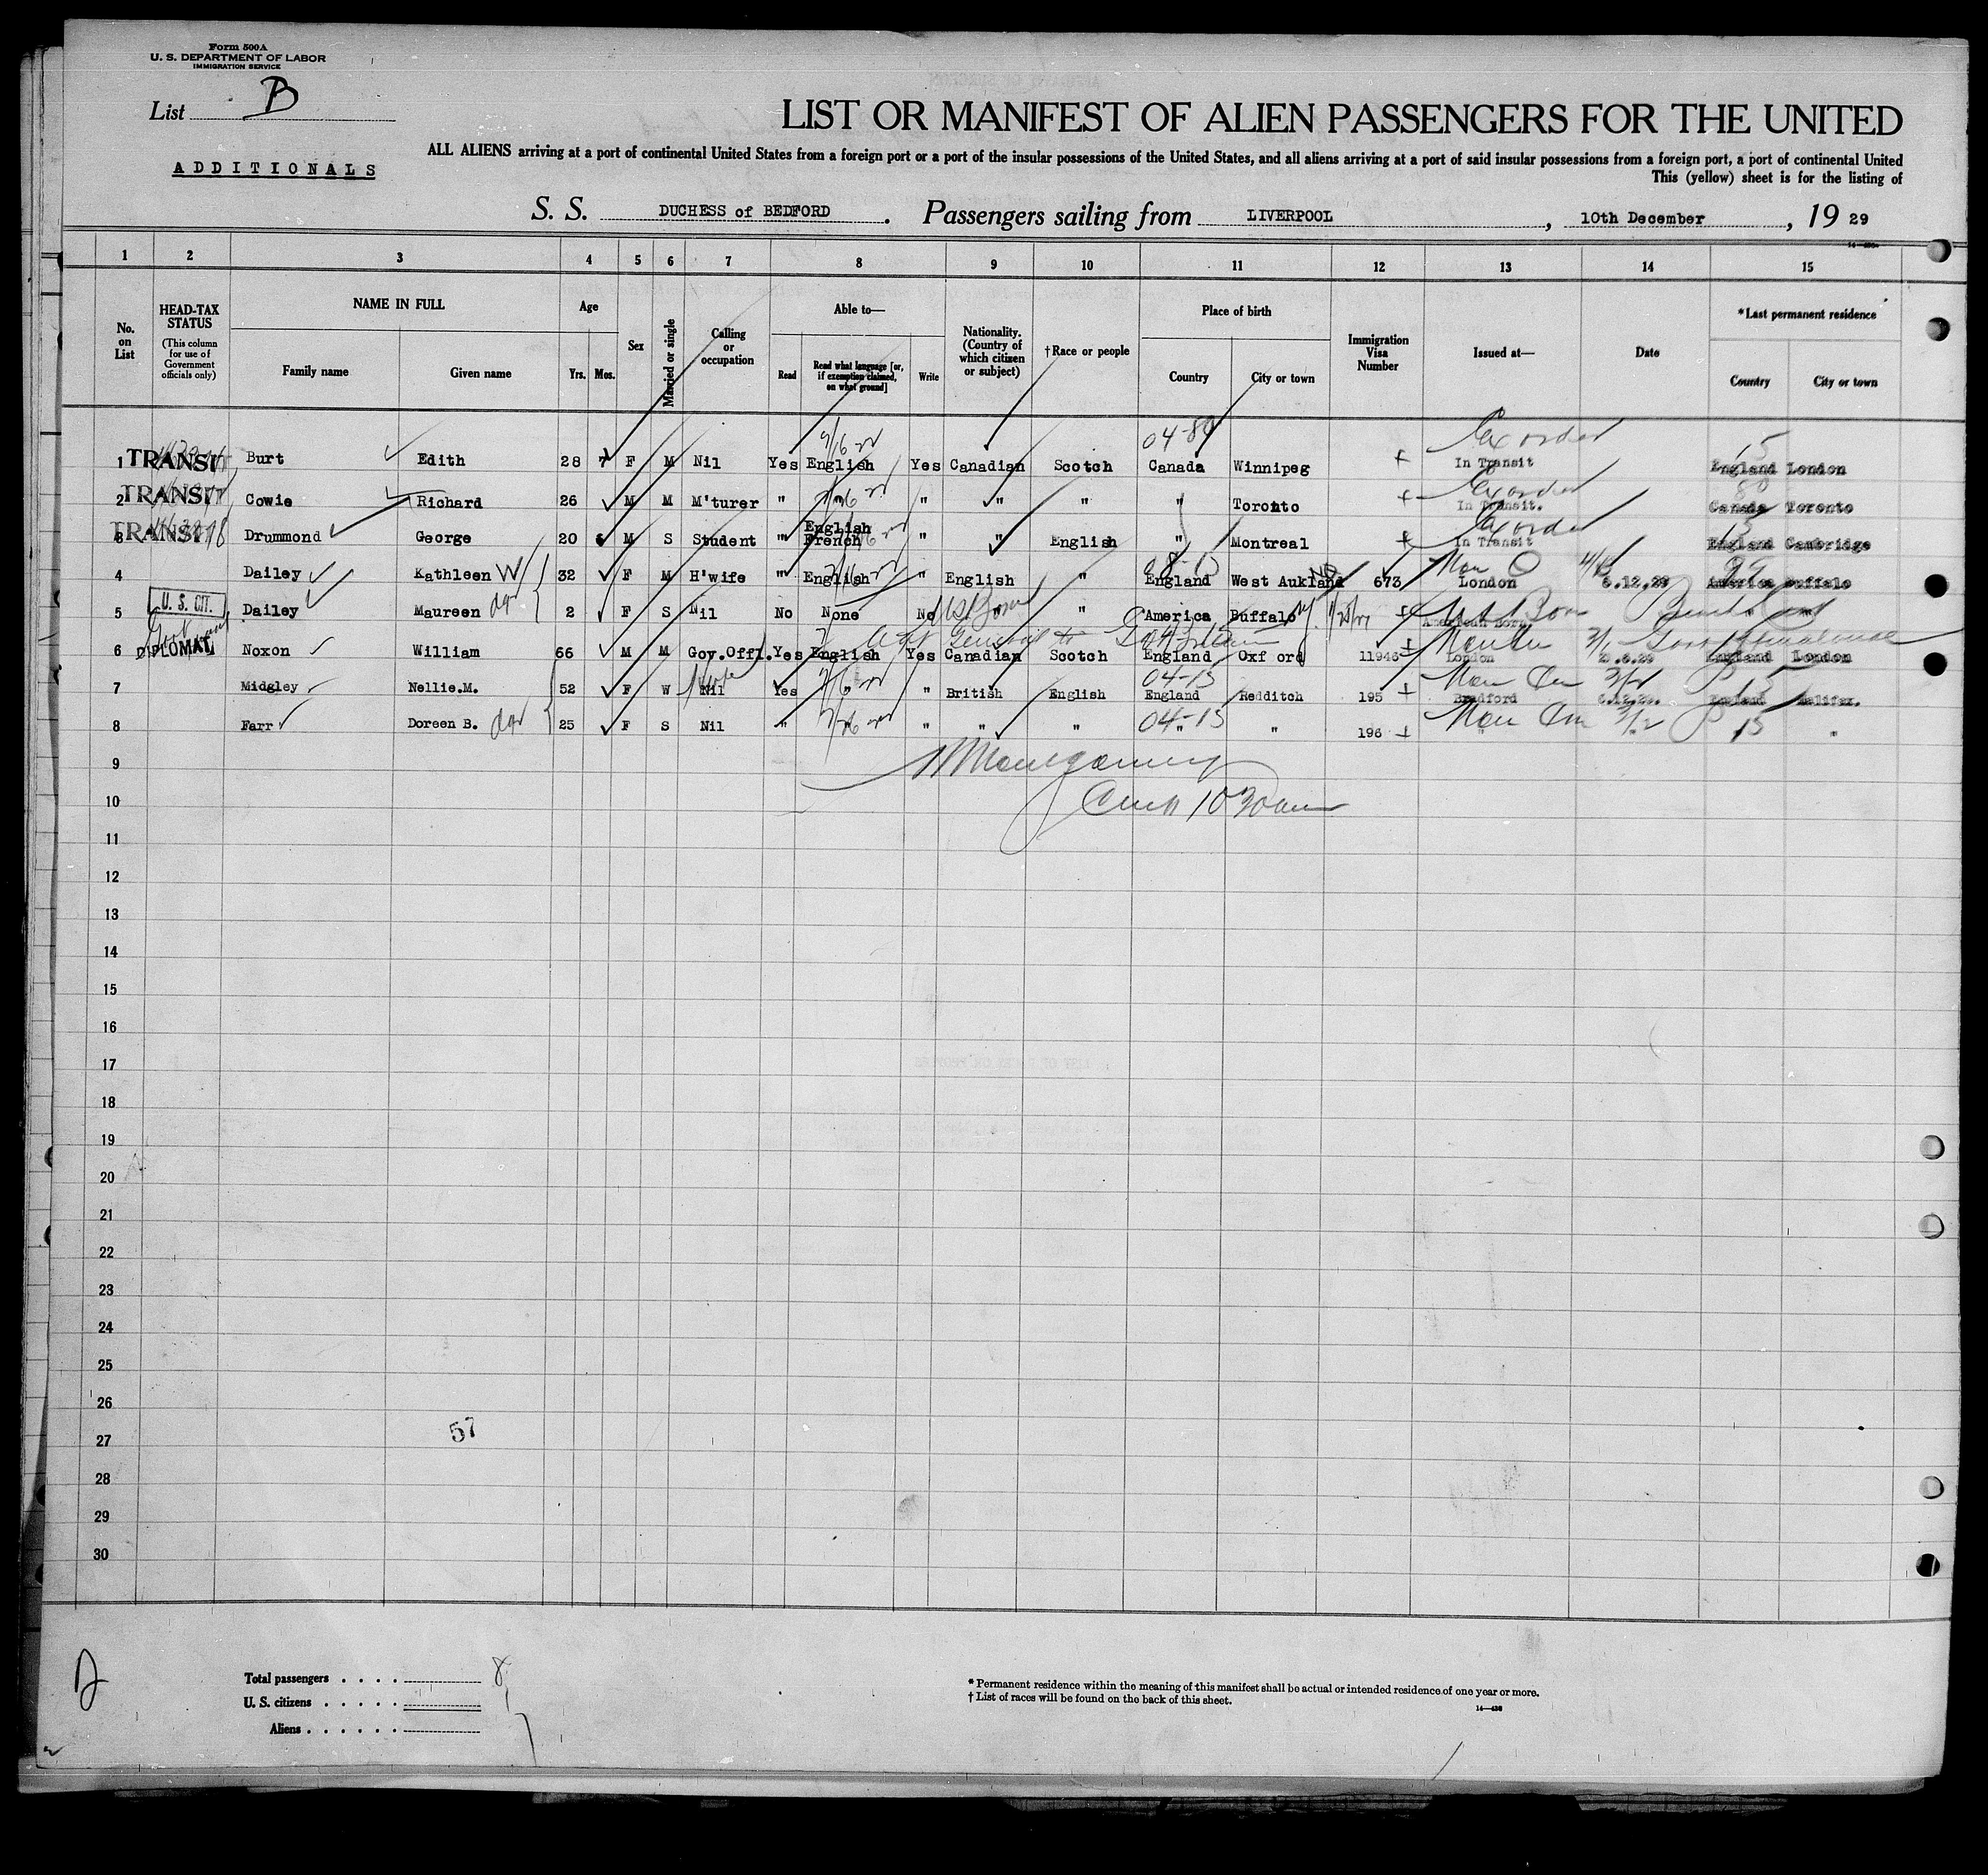 Form 500A
U. S. DEPARTMENT OF LABOR
IMMIGRATION SERVICE
List B
ADDITIONALS
LIST OR MANIFEST OF ALIEN PASSENGERS FOR THE UNITED
ALL ALIENS arriving at a port of continental United States from a foreign port or a port of the insular possessions of the United States, and all aliens arriving at a port of said insular possessions from a foreign port, a port of continental United
This (yellow) sheet is for the listing of
S. S. DUCHESS of BEDFORD. Passengers sailing from LIVERPOOL, 10th December, 19 29
1 2 3 4 5 6 7 8 9 10 11 12 13 14 15
No. on List
HEAD-TAX STATUS (This column for use of Government officials only)
NAME IN FULL Family name Given name
Age Yrs. Mos.
Sex
Married or single
Calling or occupation
Able to— Read Read what language [or, if exemption claimed, on what ground] Write
Nationality. (Country of which citizen or subject)
†Race or people
Place of birth Country City or town
Immigration Visa Number
Issued at—
Date
*Last permanent residence Country City or town
04-89 Ex order 15
1 TRANSIT Burt Edith 28 7 F M Nil Yes English Yes Canadian Scotch Canada Winnipeg In Transit England London
Ex order
2 TRANSIT Cowie Richard 26 M M M'turer " " " " " Toronto In Transit. Canada Toronto
Ex order
3 TRANSIT Drummond George 20 6 M S Student " English French " " English " Montreal In Transit England Cambridge
4 Dailey Kathleen W 32 F M H'wife " English " English " England West Aukland 673 London 6.12.29 America Buffalo
5 U. S. CIT. Dailey Maureen dgr 2 F S Nil No None No US Born " America Buffalo American Born "
6 DIPLOMAT Noxon William 66 M M Gov.Offl. Yes English Yes Canadian Scotch England Oxford 11946 London England London
04-15
7 Midgley Nellie.M. 52 F W Nil Yes " " British English England Redditch 195 Bradford 6.12.29. England Halifax.
04-15
8 Farr Doreen B. dgr 25 F S Nil " " " " " " 196 " " 15 "
9 Montgomery
10 10 30am
11
12
13
14
15
16
17
18
19
20
21
22
23
24
25
26
57
27
28
29
30
Total passengers . . . . 8
U. S. citizens . . . . .
Aliens . . . . . .
* Permanent residence within the meaning of this manifest shall be actual or intended residence of one year or more.
† List of races will be found on the back of this sheet.
14—436